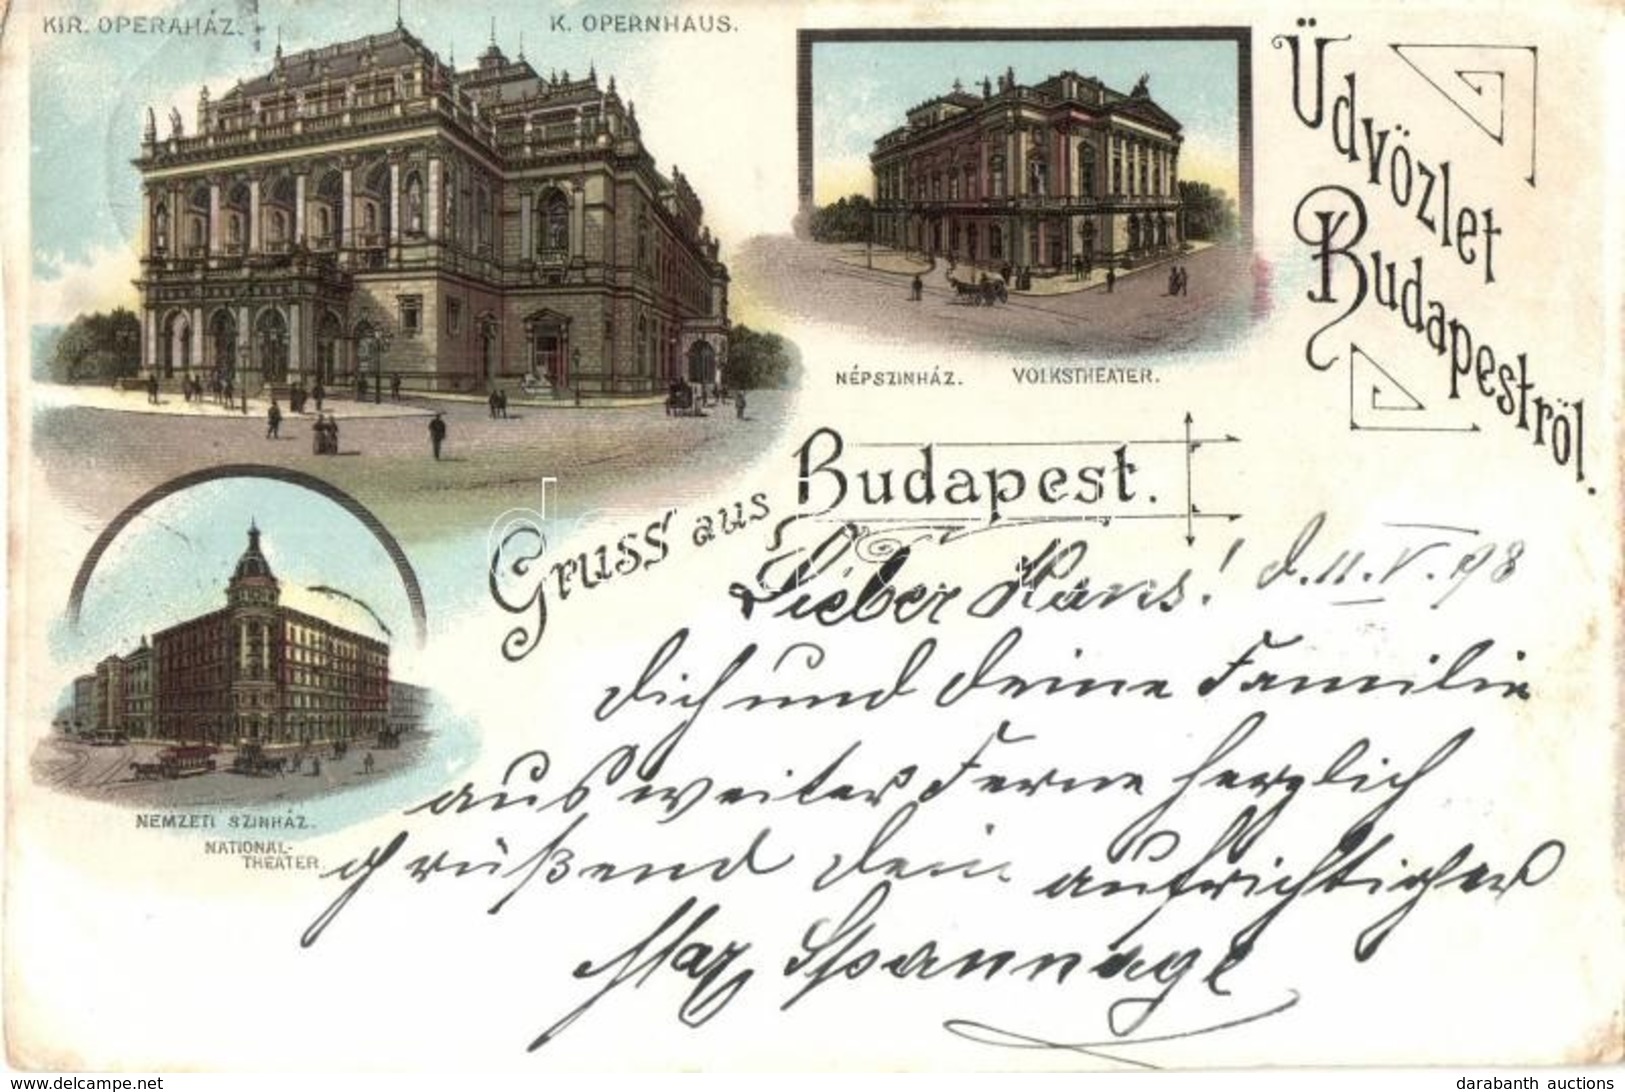 KIR. OPERAHÁZ.
K. OPERNHAUS.
NÉPSZINHÁZ.
VOLKSTHEATER.
Üdvözlet
Budapestről.
NEMZETI SZINHÁZ.
NATIONAL-
THEATER.
Gruss aus Budapest.
Lieber Hans! d. 11. V. 98
Dich und Deine Familie
aus weiter Ferne herzlich
grüßend Dein aufrichtiger
Max
www.delcampe.net
darabanth auctions